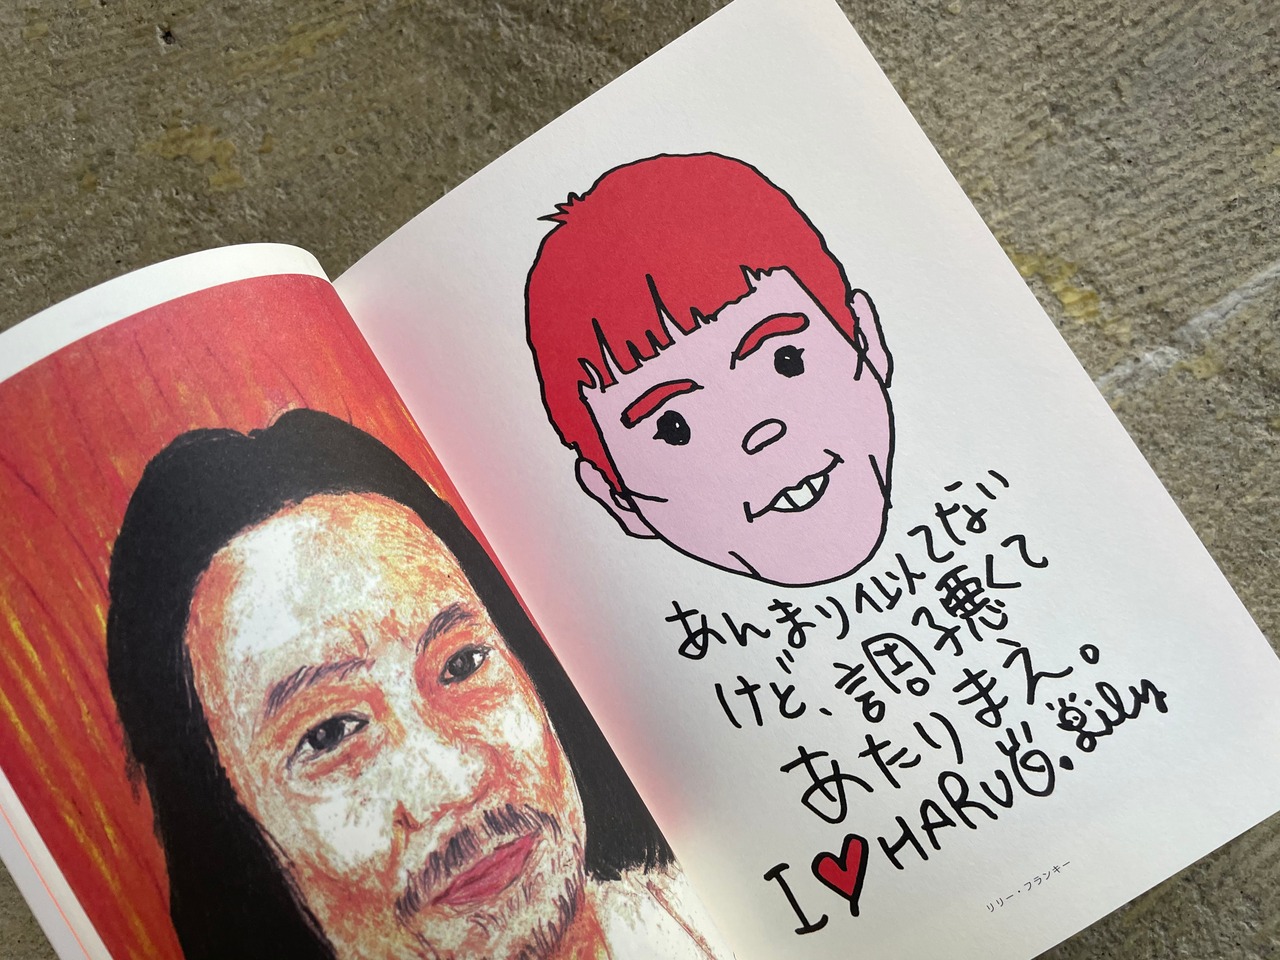 あんまり似てない
けど、調子悪くて
あたりまえ。
I ♥ HARU. Lily
リリー・フランキー